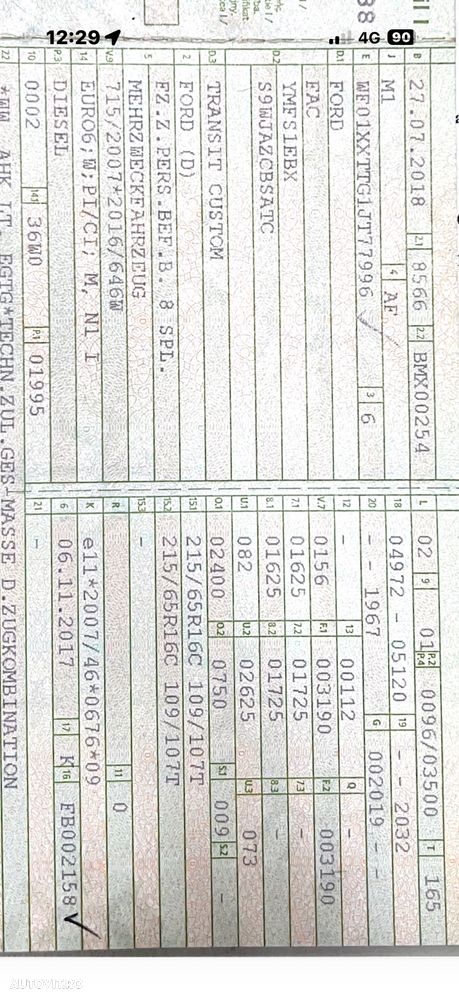 12:29
4G 90
B 27.07.2018 2.1 8566 2.2 BMX00254
J M1 4 AF
E WF01XXTTG1JT77996 3 6
D.1 FORD
FAC
D.2 YMFS1EBX
S9WJAZCBSATC
D.3 TRANSIT CUSTOM
2 FORD (D)
5 FZ.Z.PERS.BEF.B. 8 SPL.
MEHRZWECKFAHRZEUG
V.9 715/2007*2016/646W
14 EURO6;W;PI/CI; M, N1 I
P.3 DIESEL
10 0002 14.1 36W0 P.1 01995
L 02 9 01 P.2 P.4 0096/03500 T 165
18 04972 - 05120 19 - - 2032
20 - - 1967 G 002019 - -
12 - 13 00112 Q -
V.7 0156 F.1 003190 F.2 003190
7.1 01625 7.2 01725 7.3 -
8.1 01625 8.2 01725 8.3 -
U.1 082 U.2 02625 U.3 073
O.1 02400 O.2 0750 S.1 009 S.2 -
15.1 215/65R16C 109/107T
15.2 215/65R16C 109/107T
15.3 -
R 11 0
K e11*2007/46*0676*09
6 06.11.2017 17 K 16 FB002158
21 -
22 *WW AHK LT. EGTG*TECHN.ZUL.GES-MASSE D.ZUGKOMBINATION
AUTOVIT.RO